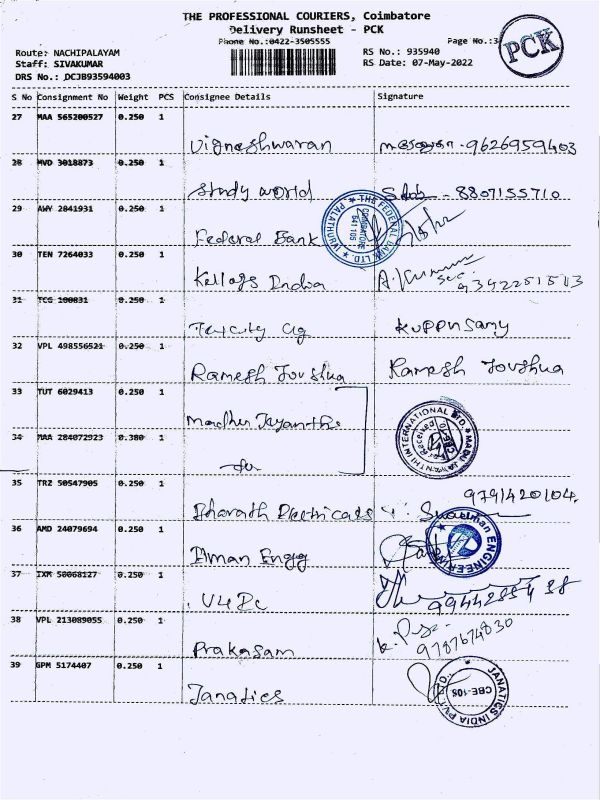 THE PROFESSIONAL COURIERS, Coimbatore
Delivery Runsheet - PCK
Phone No.:0422-3505555
Page No.:3
PCK
Route: NACHIPALAYAM
RS No.: 935940
Staff: SIVAKUMAR
RS Date: 07-May-2022
DRS No.: DCJB93594003
S No Consignment No Weight PCS Consignee Details Signature
27 MAA 565200527 0.250 1
Vigneshwaran 9626959403
28 MVD 3018873 0.250 1
Study world 8807155710
29 AWY 2841931 0.250 1
Federal Bank
THE FEDERAL BANK LTD. PALATHURAI COIMBATORE 641 105
30 TEN 7264033 0.250 1
Kellogs India A. Kumar
9342251513
31 TCG 100831 0.250 1
Texcity Kuppusamy
32 VPL 498556521 0.250 1
Ramesh Joushua Ramesh Joushua
33 TUT 6029413 0.250 1
Madhu Jayanthi
MADU JAYANTHI INTERNATIONAL LTD. Received
34 MAA 284072923 0.380 1
35 TRZ 50547905 0.250 1
9791420104
Bharath Electricals
36 AMD 24079694 0.250 1
Engg
ENGINEERING
37 IXM 50068127 0.250 1
V4 Pc
38 VPL 213089055 0.250 1
9787674830
Prakasam
39 GPM 5174407 0.250 1
Janatics
JANATICS INDIA PVT. LTD. CBE-108